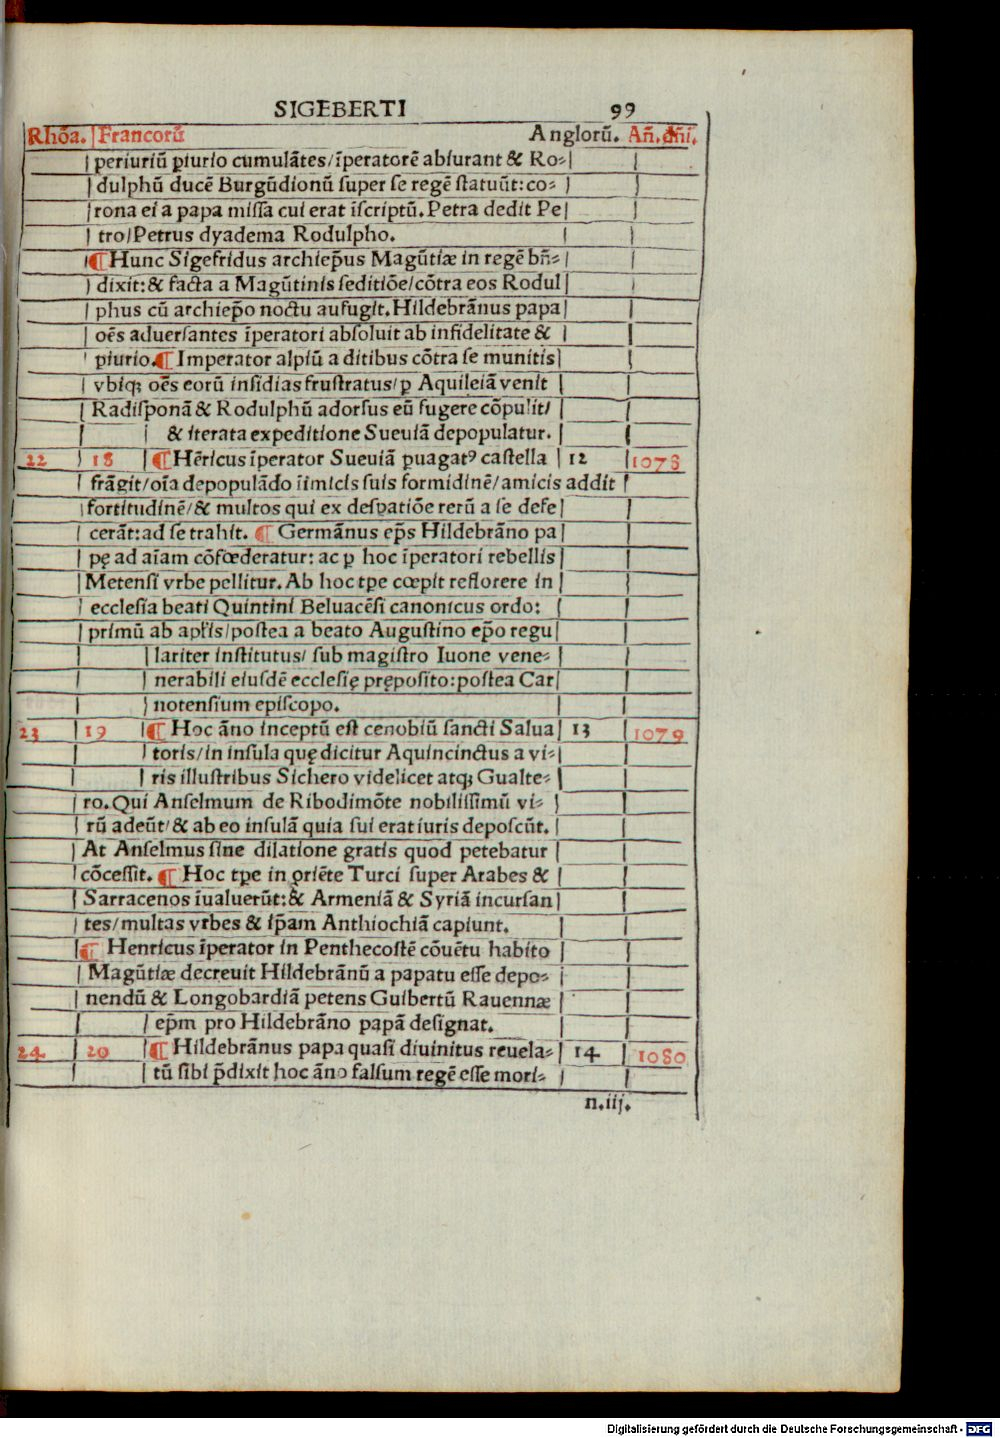 SIGEBERTI 99
Rhõa. Francorũ Anglorũ. Añ. dñi.
periuriũ ꝑiurio cumulãtes/ĩperatorẽ abiurant & Ro-
dulphũ ducẽ Burgũdionũ super se regẽ statuũt:co-
rona ei a papa missa cui erat ĩscriptũ. Petra dedit Pe
tro/Petrus dyadema Rodulpho.
¶ Hunc Sigefridus archiep̃us Magũtiæ in regẽ bñ-
dixit:& facta a Magũtinis seditiõe/cõtra eos Rodul
phus cũ archiep̃o noctu aufugit. Hildebrãnus papa
oẽs aduersantes ĩperatori absoluit ab infidelitate &
ꝑiurio. ¶ Imperator alpiũ a ditibus cõtra se munitis
vbiqꝫ oẽs eorũ insidias frustratus/ꝑ Aquileiã venit
Radisponã & Rodulphũ adorsus eũ fugere cõpulit/
& iterata expeditione Sueuiã depopulatur.
22 18 ¶ Hẽricus ĩperator Sueuiã ꝑuagatꝰ castella 12 1078
frãgit/oĩa depopulãdo ĩimicis suis formidinẽ/amicis addit
fortitudinẽ/& multos qui ex desꝑatiõe rerũ a se defe
cerãt:ad se trahit. ¶ Germãnus ep̃s Hildebrãno pa
pę ad aĩam cõfœderatur: ac ꝑ hoc ĩperatori rebellis
Metensi vrbe pellitur. Ab hoc tꝑe cœpit reflorere in
ecclesia beati Quintini Beluacẽsi canonicus ordo:
primũ ab apl̃is/postea a beato Augustino ep̃o regu
lariter institutus/ sub magistro Iuone vene-
nerabili eiusdẽ ecclesię pręposito:postea Car
notensium episcopo.
23 19 ¶ Hoc ãno inceptũ est cenobiũ sancti Salua 13 1079
toris/in insula quę dicitur Aquincinctus a vi-
ris illustribus Sichero videlicet atqꝫ Gualte-
ro. Qui Anselmum de Ribodimõte nobilissimũ vi-
rũ adeũt/& ab eo insulã quia sui erat iuris deposcũt.
At Anselmus sine dilatione gratis quod petebatur
cõcessit. ¶ Hoc tꝑe in oriẽte Turci super Arabes &
Sarracenos ĩualuerũt:& Armeniã & Syriã incursan
tes/multas vrbes & ip̃am Anthiochiã capiunt.
¶ Henricus ĩperator in Penthecostẽ cõuẽtu habito
Magũtiæ decreuit Hildebrãnũ a papatu esse depo-
nendũ & Longobardiã petens Guibertũ Rauennæ
ep̃m pro Hildebrãno papã designat.
24 20 ¶ Hildebrãnus papa quasi diuinitus reuela- 14 1080
tũ sibi p̃dixit hoc ãno falsum regẽ esse mori-
n.iij.
Digitalisierung gefördert durch die Deutsche Forschungsgemeinschaft - DFG